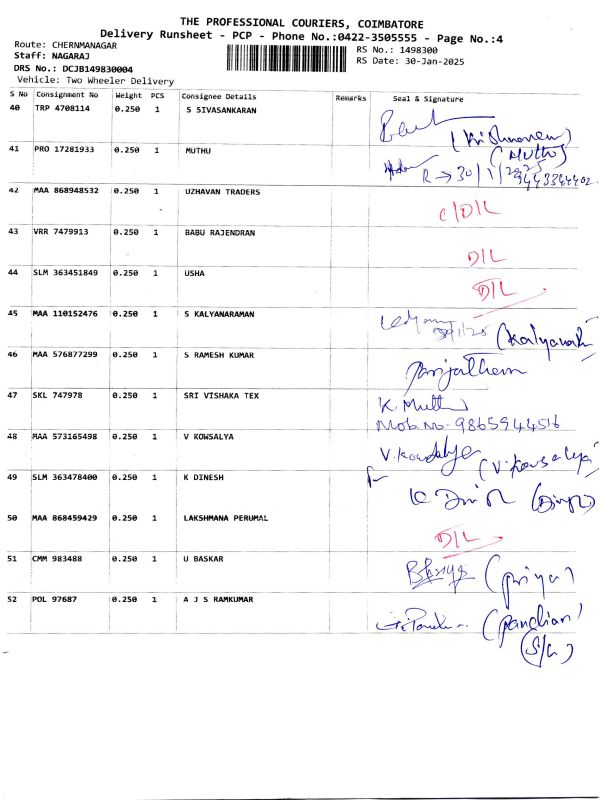 THE PROFESSIONAL COURIERS, COIMBATORE
Delivery Runsheet - PCP - Phone No.:0422-3505555 - Page No.:4
Route: CHERNMANAGAR
Staff: NAGARAJ
DRS No.: DCJB149830004
Vehicle: Two Wheeler Delivery
RS No.: 1498300
RS Date: 30-Jan-2025
S No Consignment No Weight PCS Consignee Details Remarks Seal & Signature
40 TRP 4708114 0.250 1 S SIVASANKARAN
41 PRO 17281933 0.250 1 MUTHU (Muthu)
R → 30/1/2025
42 MAA 868948532 0.250 1 UZHAVAN TRADERS C/D/L
43 VRR 7479913 0.250 1 BABU RAJENDRAN D/L
44 SLM 363451849 0.250 1 USHA D/L
45 MAA 110152476 0.250 1 S KALYANARAMAN
46 MAA 576877299 0.250 1 S RAMESH KUMAR
47 SKL 747978 0.250 1 SRI VISHAKA TEX K. Muthu
Mob.No. 9865944516
48 MAA 573165498 0.250 1 V KOWSALYA V.Kowsalya (V.Kowsalya)
49 SLM 363478400 0.250 1 K DINESH
50 MAA 868459429 0.250 1 LAKSHMANA PERUMAL D/L
51 CMM 983488 0.250 1 U BASKAR (Priya)
52 POL 97687 0.250 1 A J S RAMKUMAR (Pandian)
(S/G)